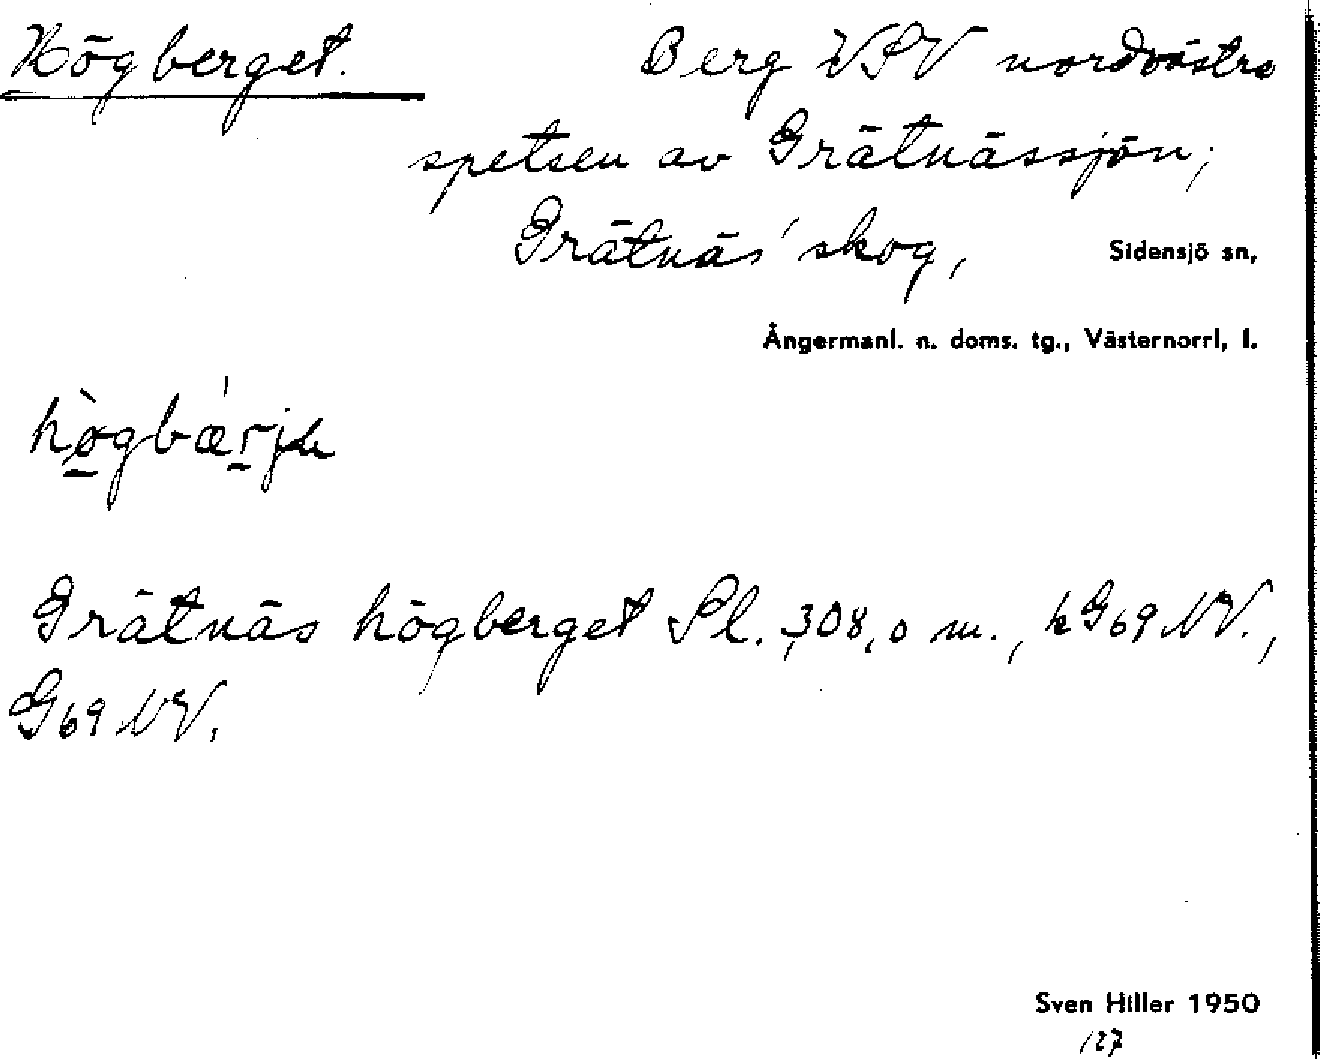 Högberget. Berg VSV nordvästra
spetsen av Grätnässjön;
Grätnäs' skog, Sidensjö sn,
Ångermanl. n. doms. tg., Västernorrl, l.
Grätnäs högberget Pl. 308,0 m., k G69 NV.,
G69 NV.
Sven Hiller 1950
127